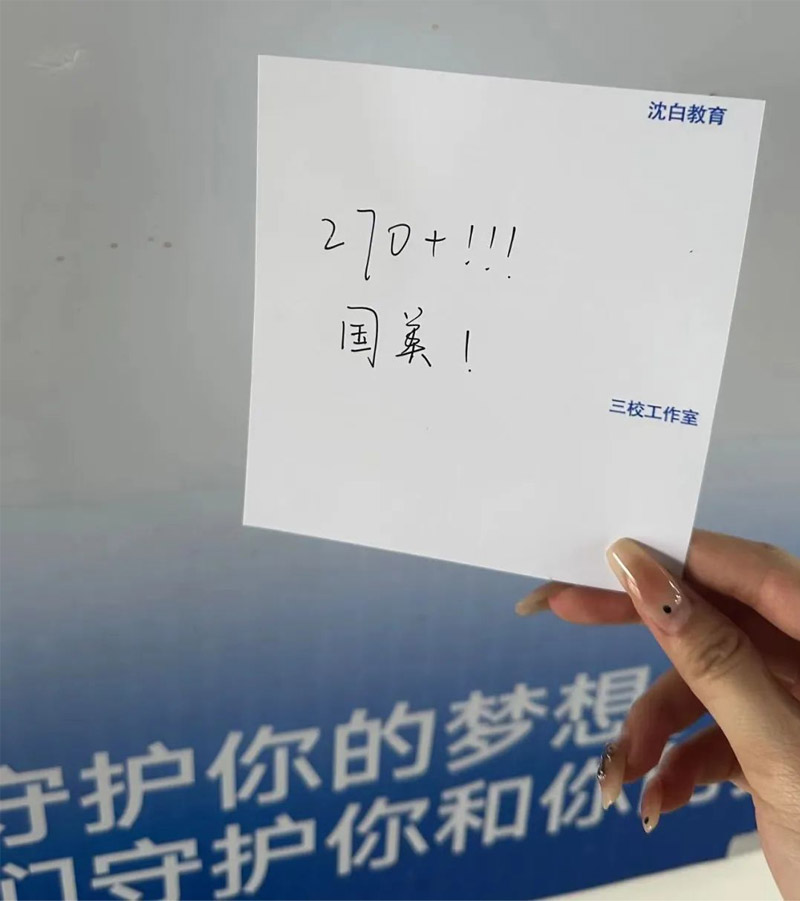 沈白教育
270+!!!
国美!
三校工作室
守护你的梦想
们守护你和你的